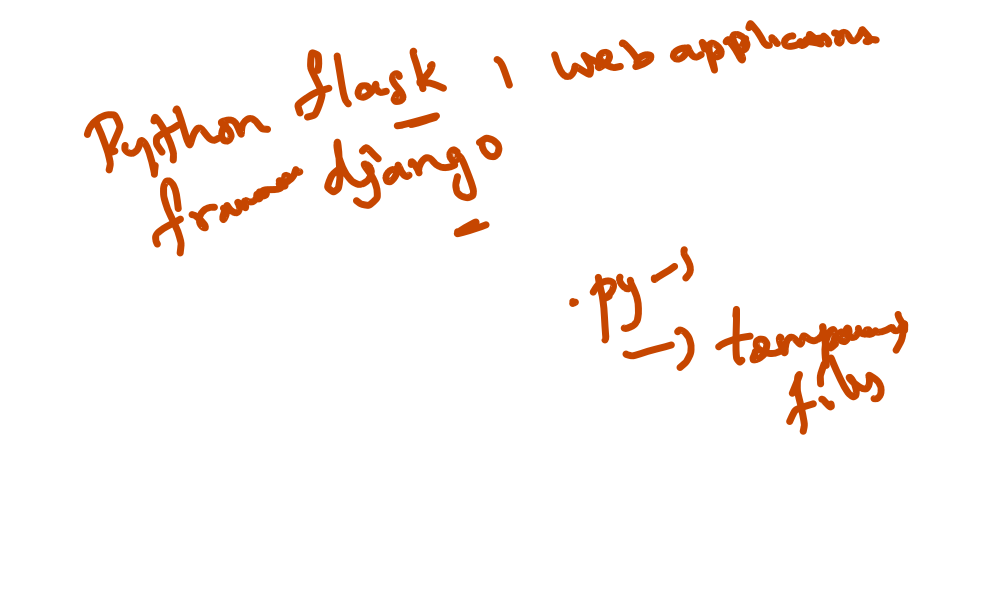 Python flask, web applicatons
frame django
.py →
→ temporary
files